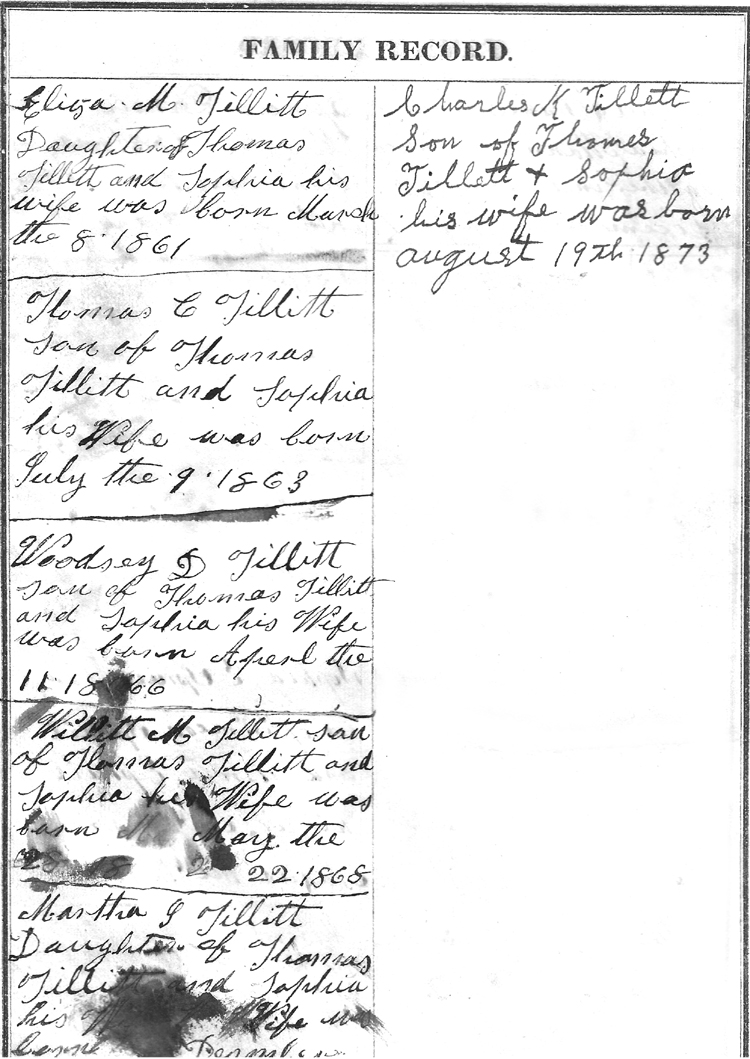 FAMILY RECORD.
Eliza M. Tillitt
Daughter of Thomas
Tillitt and Sophia his
wife was born March
the 8 1861
Thomas C Tillitt
Son of Thomas
Tillitt and Sophia
his Wife was born
July the 9 1863
Woodsey D Tillitt
son of Thomas Tillitt
and Sophia his Wife
was born Aperl the
11 1866
Willitt M Tillitt son
of Thomas Tillitt and
Sophia his Wife was
born May the
22 1868
Martha J Tillitt
Daughter of Thomas
Tillitt and Sophia
his Wife was
Charles K Tillett
Son of Thomes
Tillett & Sophia
his wife was born
august 19th 1873